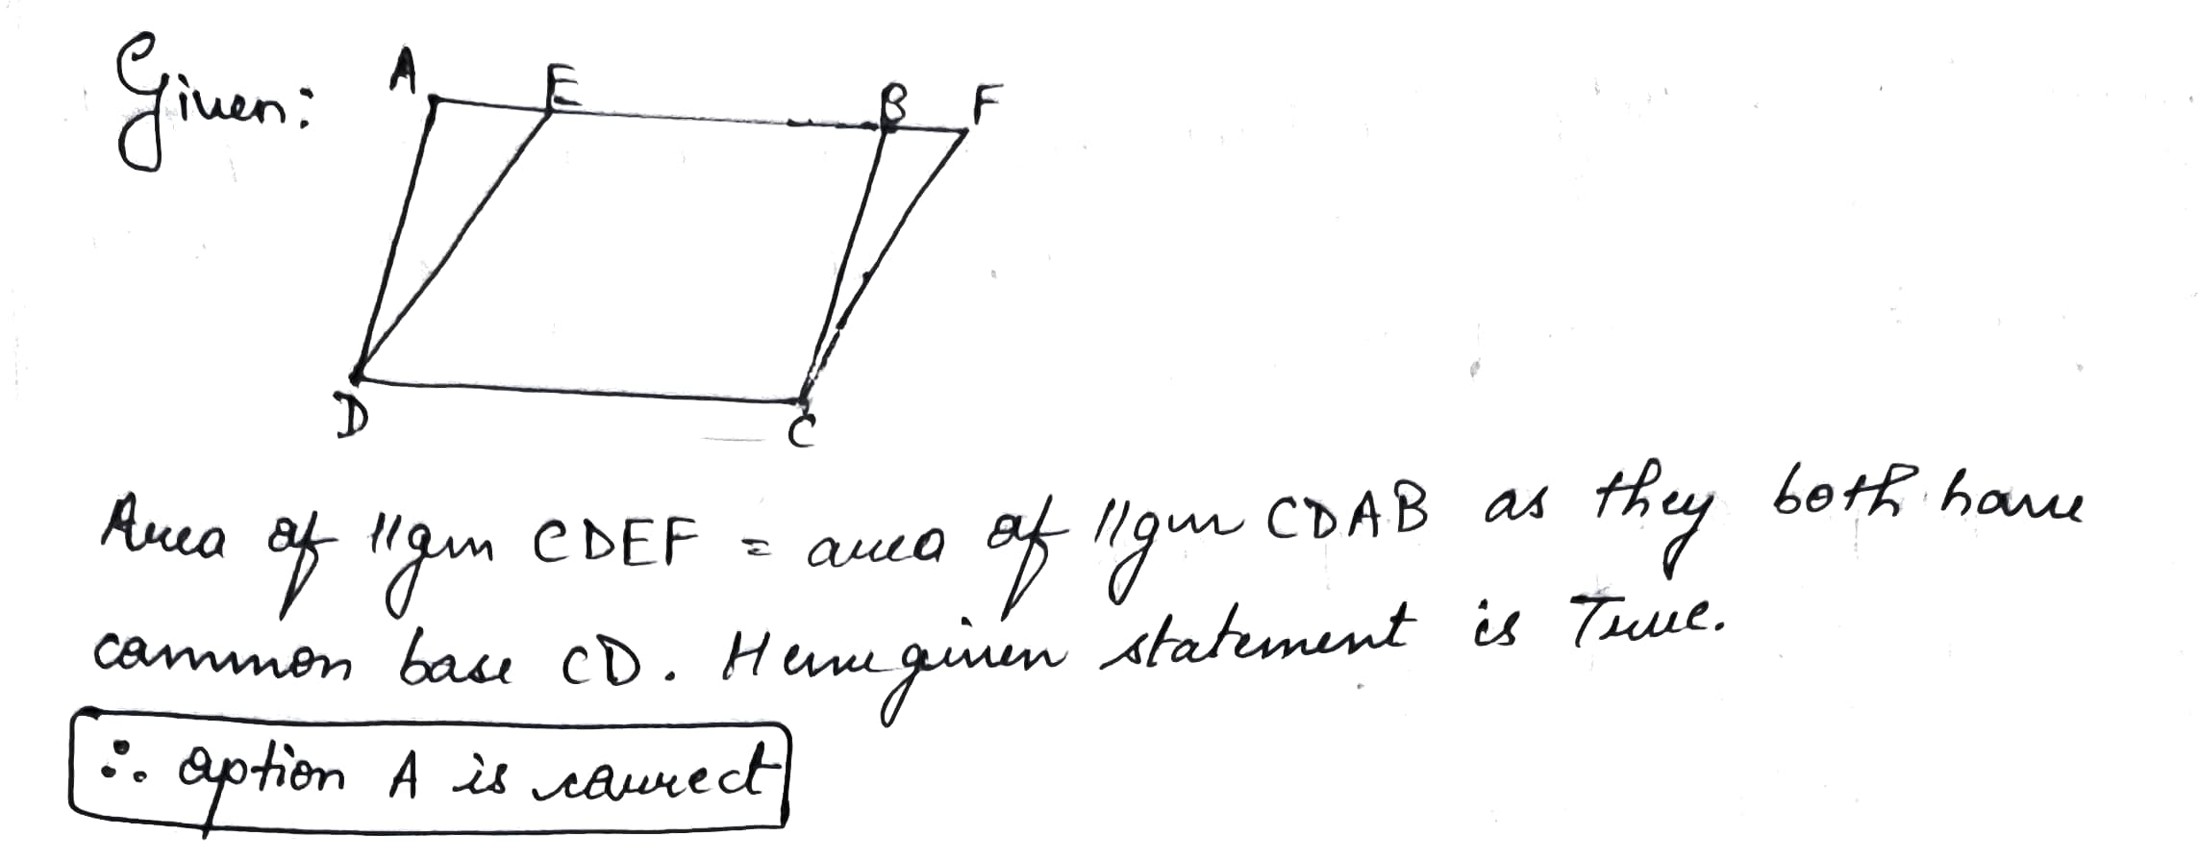 Given:
A E B F
D C
Area of ||gm CDEF = area of ||gm CDAB as they both have
common base CD. Hence given statement is True.
∴ option A is correct